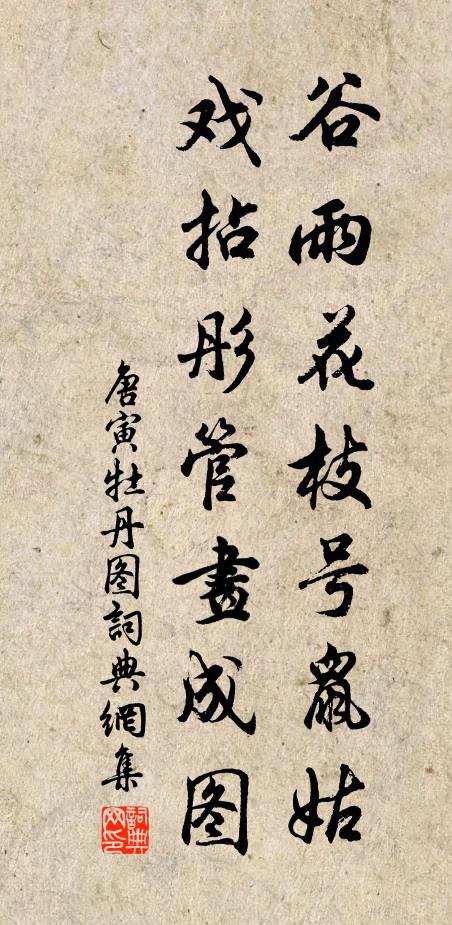 谷雨花枝号鼠姑
戏拈彤管畫成图
唐寅牡丹图詞典網集
詞典网印